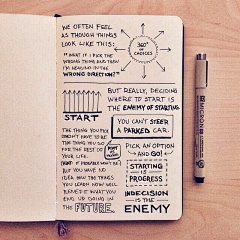 WE OFTEN FEEL
AS THOUGH THINGS
LOOK LIKE THIS:
360° OF CHOICES
"WHAT IF I PICK THE
WRONG THING AND THEN
I'M HEADING IN THE
WRONG DIRECTION?"
START
BUT REALLY, DECIDING
WHERE TO START IS
THE ENEMY OF STARTING.
YOU CAN'T STEER
A PARKED CAR.
THE THING YOU PICK
DOESN'T HAVE TO BE
THE THING YOU DO
FOR THE REST OF
YOUR LIFE.
(HINT: IT PROBABLY WON'T BE)
BUT YOU HAVE NO
IDEA HOW THE THINGS
YOU LEARN NOW WILL
BENEFIT WHAT YOU
END UP DOING IN
THE FUTURE.
PICK AN OPTION
AND GO!
STARTING
IS
PROGRESS
INDECISION
IS THE
ENEMY
MICRON